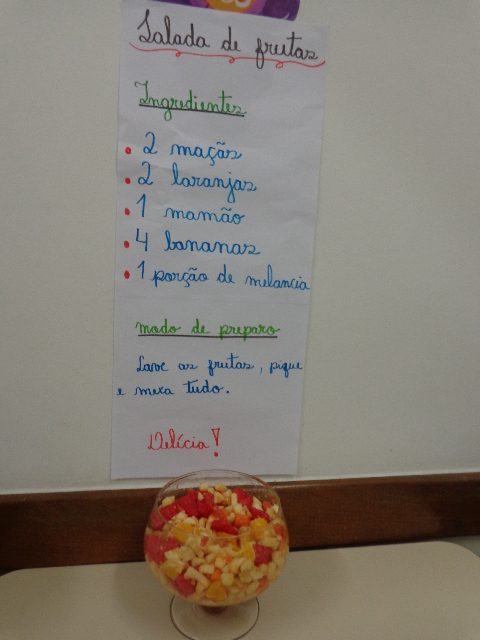 Salada de frutas
Ingredientes
• 2 maçãs
• 2 laranjas
• 1 mamão
• 4 bananas
• 1 porção de melancia
modo de preparo
Lave as frutas, pique
e mexa tudo.
Delícia!